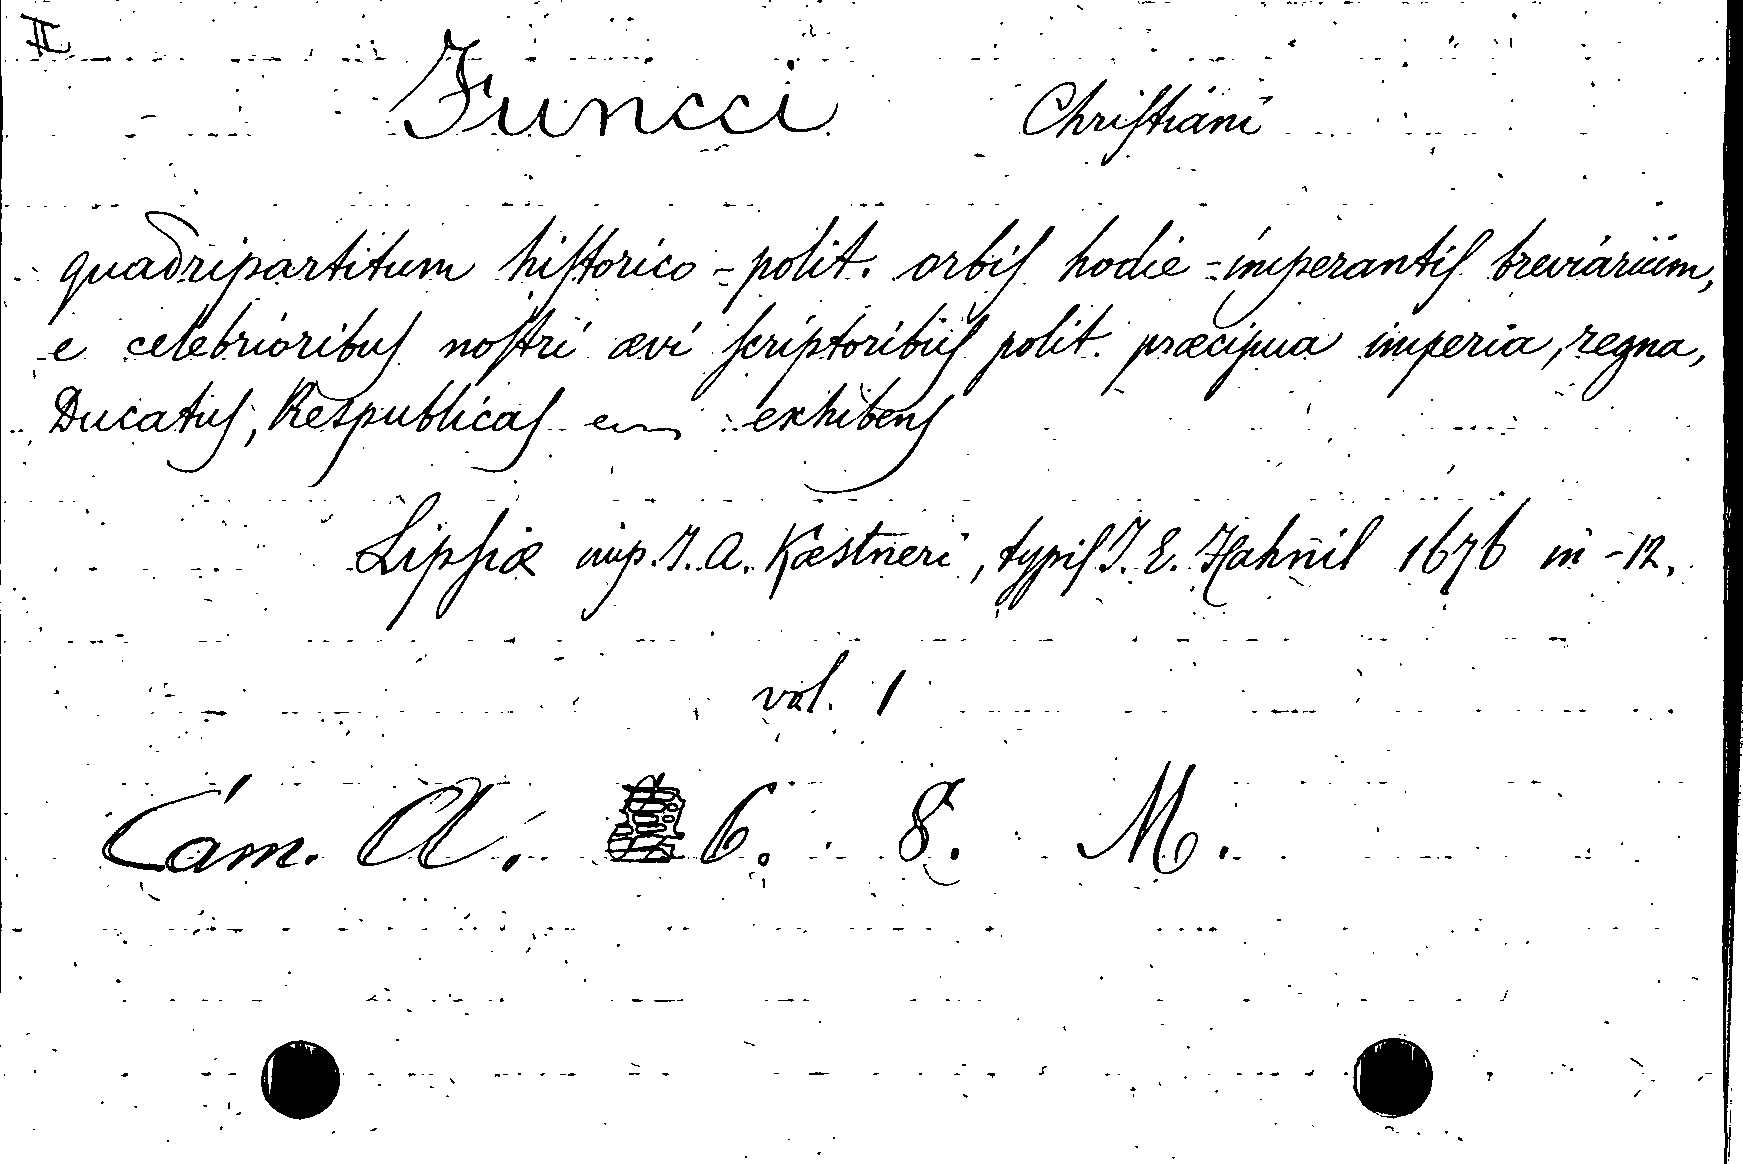 II
Juncci Christiani
quadripartitum historico-polit. orbis hodie-imperantis breviarium,
e celebrioribus nostri ævi scriptoribus polit. præcipua imperia, regna,
Ducatus, Respublicas exhibens
Lipsiæ imp. J. A. Kæstneri, typis J. E. Hahnil 1676 in-12.
vol. 1
Cam. A. 6. 8. M.